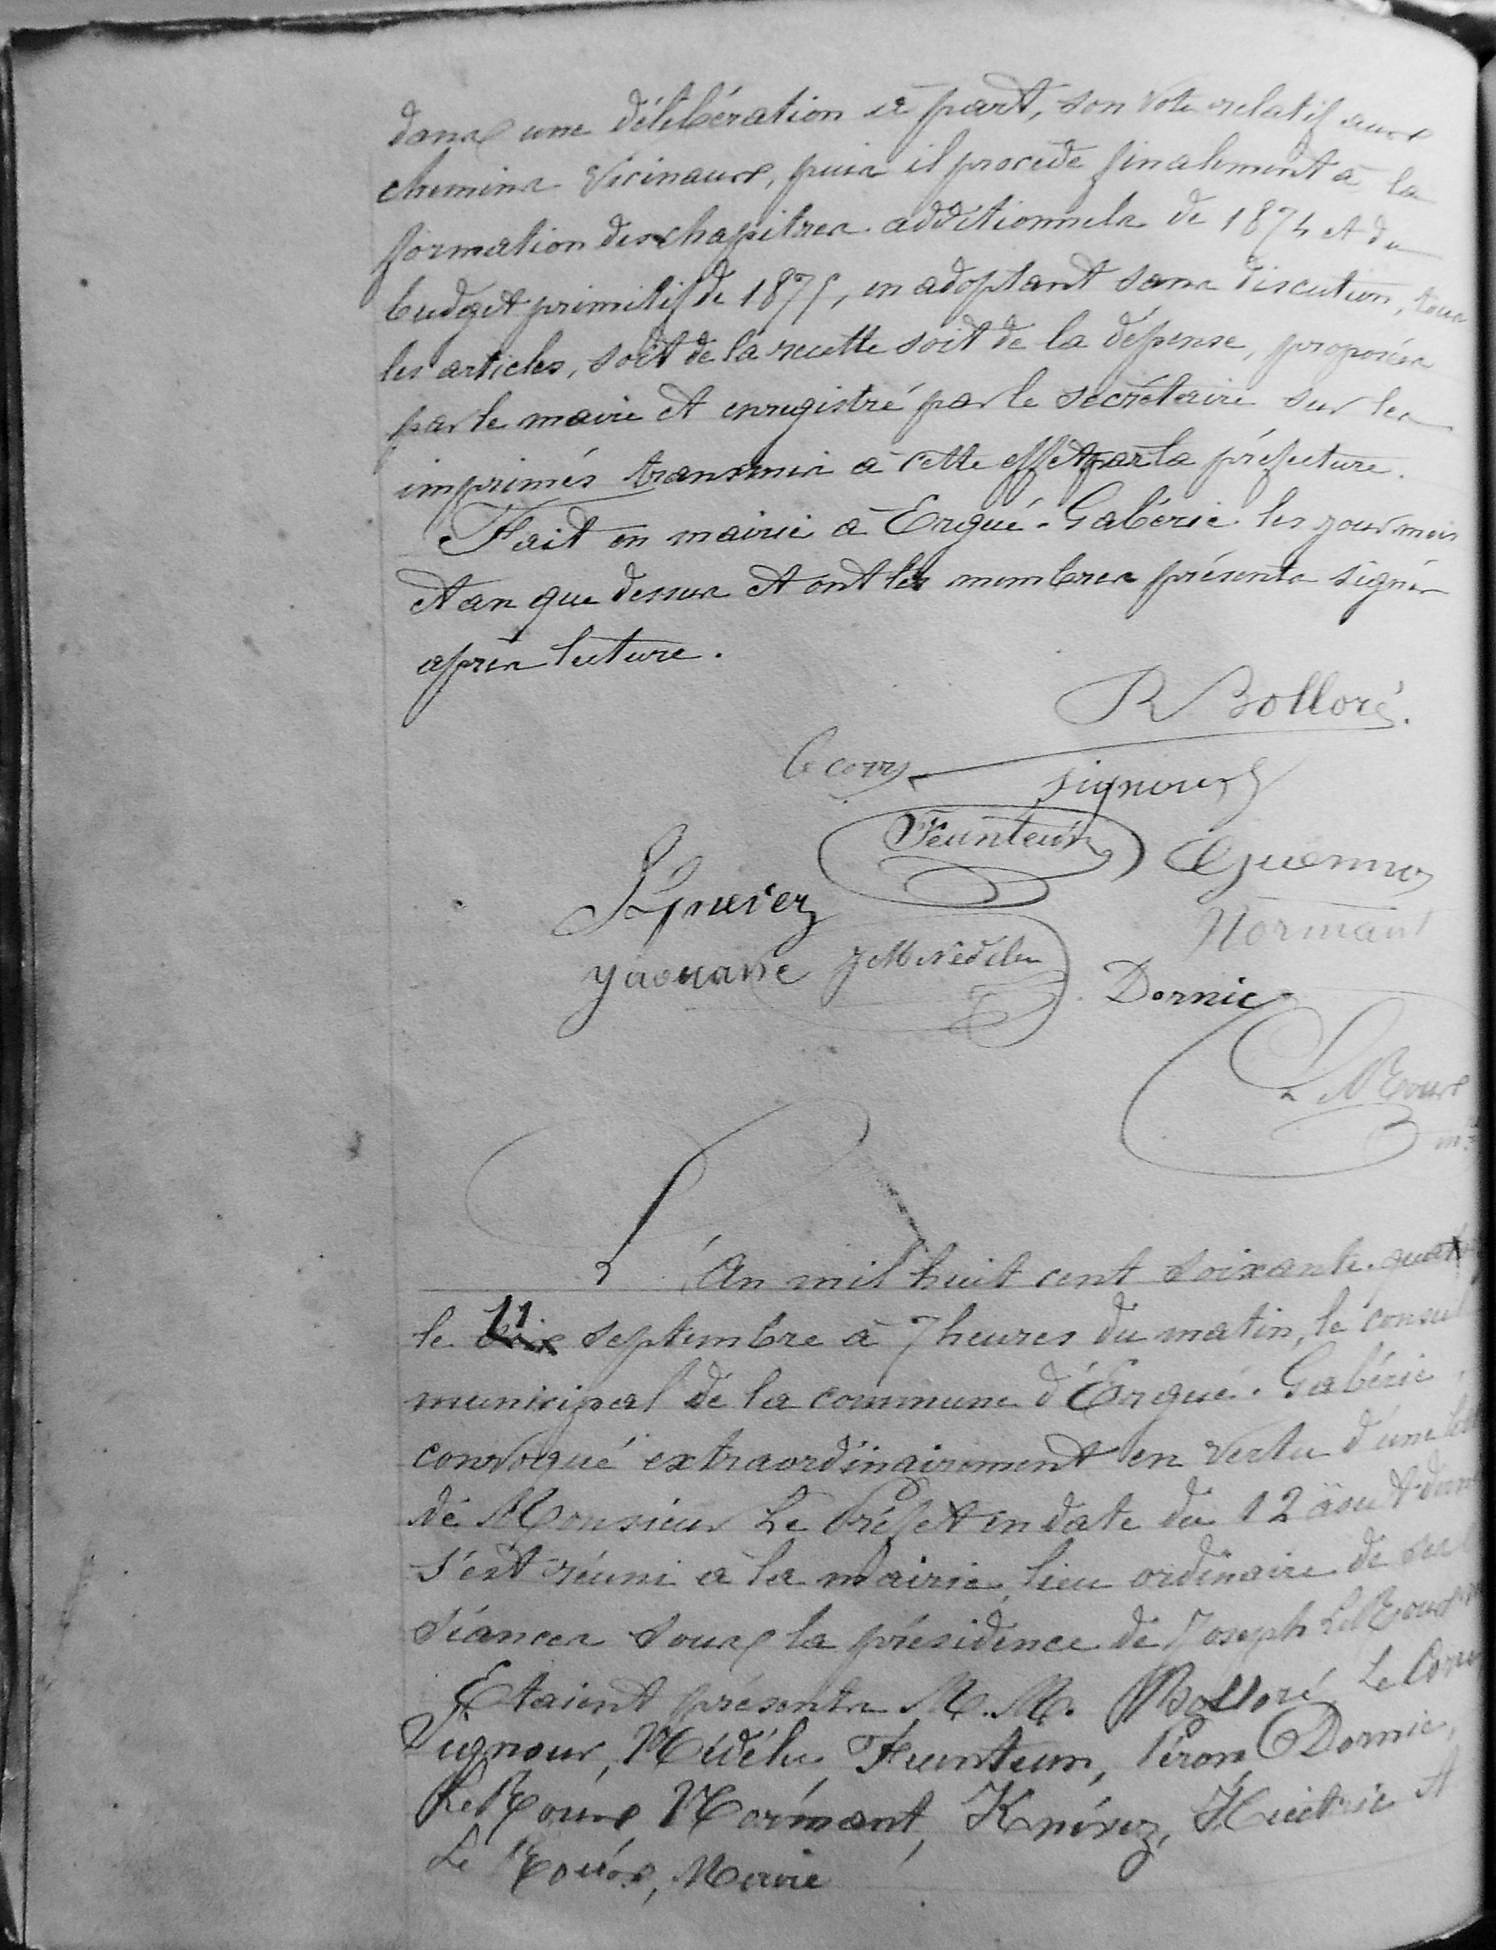 dans une délibération à part, son vote relatif aux
chemins vicinaux, puis il procède finalement à la
formation des chapitres additionnels de 1874 et du
budget primitif de 1875, en adoptant sans discution, tous
les articles, soit de la recette soit de la dépense, proposés
par le maire et enregistré par le secrétaire sur les
imprimés transmis à cette effet par la préfecture.
Fait en mairie à Ergué-Gabéric les jour mois
et an que dessus et ont les membres présents signés
après lecture.
R Bolloré.
Le corre
Signour
Feunteun
Guenno
Normant
JM Nédélec
Yaouanc
Dornic
Le Roux
L'An mil huit cent soixante-
le 11 septembre à 7 heures du matin, le conseil
municipal de la commune d'Ergué-Gabéric,
convoqué extraordinairement en vertu d'une
de Monsieur Le Préfet en date du 12 août
s'est réuni à la mairie, lieu ordinaire de ses
séances sous la présidence de Joseph Le Roux
Etaient présents M.M. Bolloré, Le Corre
Signour, Nédélec Feunteun, Péron, Dornic,
Le Roux Normant, Knévez, Huitric et
Le Roux, Maire